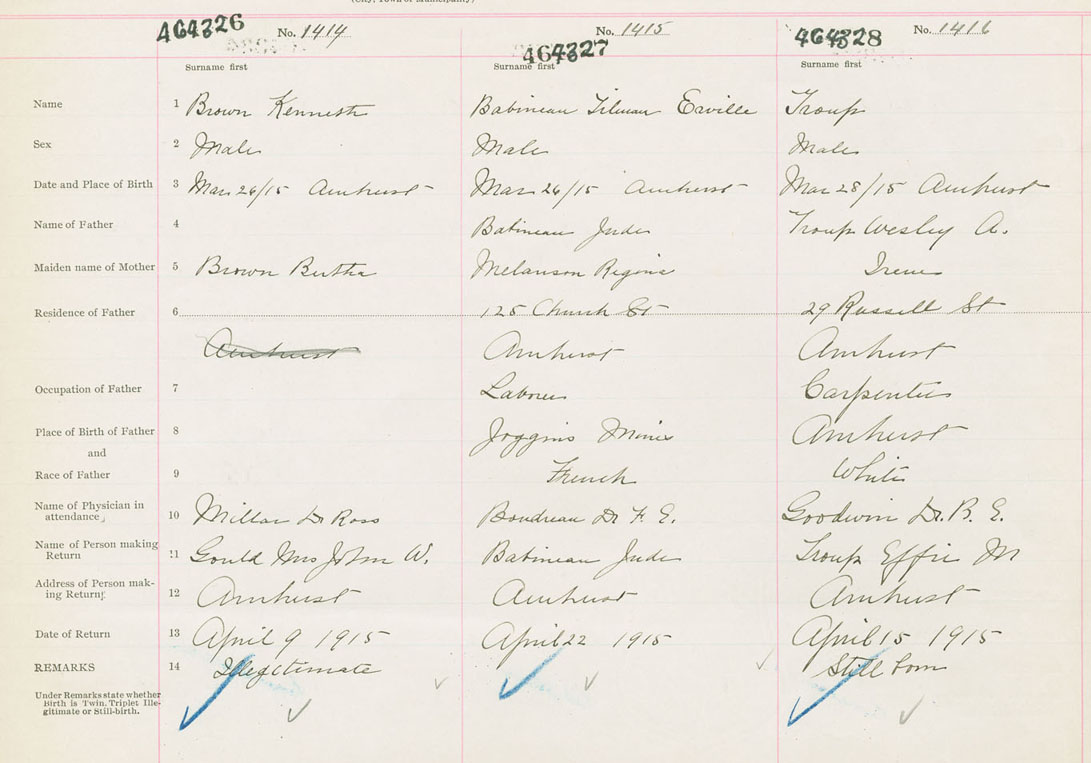 (City, Town or Municipality)
464326 No. 1414 464327 No. 1415 464328 No. 1416
Surname first Surname first Surname first
Name 1 Brown Kenneth Babineau Tilman Erville Troup
Sex 2 Male Male Male
Date and Place of Birth 3 Mar 26/15 Amherst Mar 26/15 Amherst Mar 28/15 Amherst
Name of Father 4 Babineau Jude Troup Wesley A.
Maiden name of Mother 5 Brown Bertha Melanson Regina Irene
Residence of Father 6 125 Church St 29 Russell St
Amherst Amherst Amherst
Occupation of Father 7 Laborer Carpenter
Place of Birth of Father 8 Joggins Mines Amherst
and
Race of Father 9 French White
Name of Physician in
attendance 10 Millar Dr Ross Boudreau Dr F. E. Goodwin Dr. B. E.
Name of Person making
Return 11 Gould Mrs John W. Babineau Jude Troup Effie M
Address of Person mak-
ing Return 12 Amherst Amherst Amherst
Date of Return 13 April 9 1915 April 22 1915 April 15 1915
REMARKS 14 Illegitimate Still born
Under Remarks state whether
Birth is Twin, Triplet Ille-
gitimate or Still-birth.